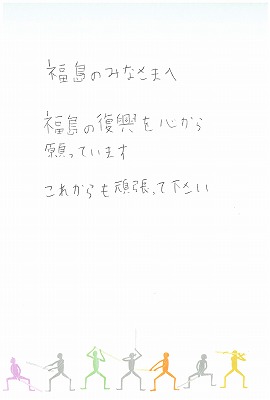 福島のみなさまへ
福島の復興を心から
願っています
これからも頑張って下さい